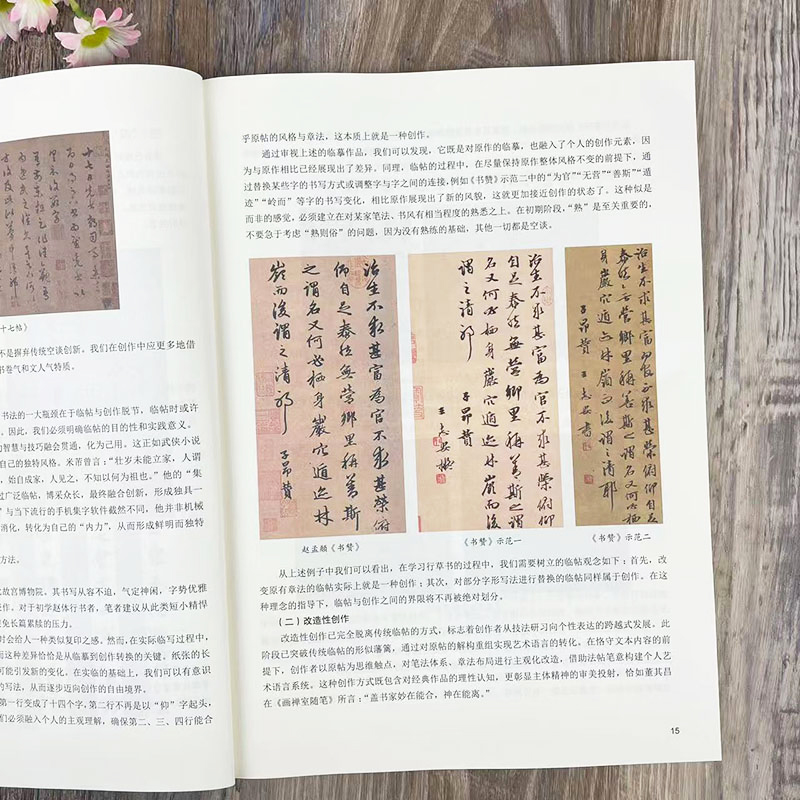 十七帖》
不是摒弃传统空谈创新。我们在创作中应更多地借
书卷气和文人气特质。
书法的一大瓶颈在于临帖与创作脱节，临帖时或许
。因此，我们必须明确临帖的目的性和实践意义。
的智慧与技巧融会贯通，化为己用。这正如武侠小说
自己的独特风格。米芾曾言：“壮岁未能立家，人谓
，始自成家，人见之，不知以何为祖也。”他的“集
过广泛临帖，博采众长，最终融合创新，形成独具一
”与当下流行的手机集字软件截然不同，他并非机械
消化，转化为自己的“内力”，从而形成鲜明而独特
方法。
故宫博物院，其书写从容不迫，气定神闲，字势优雅
作。对于初学赵体行书者，笔者建议从此类短小精悍
免长篇累牍的压力。
时会给人一种类似复印之感。然而，在实际临写过程中，
而这种差异恰恰是从临摹到创作转换的关键。纸张的长
可能引发新的变化。在实临的基础上，我们可以有意识
的写法，从而逐步迈向创作的自由境界。
第一行变成了十四个字，第二行不再是以“仰”字起头，
们必须融入个人的主观理解，确保第二、三、四行能合
乎原帖的风格与章法，这本质上就是一种创作。
通过审视上述的临摹作品，我们可以发现，它既是对原作的临摹，也融入了个人的创作元素，因
为与原作相比已经展现出了差异。同理，临帖的过程中，在尽量保持原作整体风格不变的前提下，通
过替换某些字的书写方式或调整字与字之间的连接，例如《书赞》示范二中的“为官”“无营”“善斯”“遁
迹”“岭而”等字的书写变化，相比原作展现出了新的风貌，这就更加接近创作的状态了。这种似是
而非的感觉，必须建立在对某家笔法、书风有相当程度的熟悉之上。在初期阶段，“熟”是至关重要的，
不要急于考虑“熟则俗”的问题，因为没有熟练的基础，其他一切都是空谈。
治生不求甚富为官不求甚荣俯
仰自足泰然无营乡里称善斯
之谓名又何必栖身岩穴遁迹林
岭而后谓之清耶
子昂赞
治生不求甚富为官不求甚荣俯仰
自足泰然无营乡里称善斯之谓
名又何必栖身岩穴遁迹林岭而后
谓之清耶
子昂赞
治生不求甚富为官不求甚荣俯仰自足
泰然无营乡里称善斯之谓名又何必栖
身岩穴遁迹林岭而后谓之清耶
子昂赞
赵孟頫《书赞》
《书赞》示范一
《书赞》示范二
从上述例子中我们可以看出，在学习行草书的过程中，我们需要树立的临帖观念如下：首先，改
变原有章法的临帖实际上就是一种创作；其次，对部分字形写法进行替换的临帖同样属于创作。在这
种理念的指导下，临帖与创作之间的界限将不再被绝对划分。
（二）改造性创作
改造性创作已完全脱离传统临帖的方式，标志着创作者从技法研习向个性表达的跨越式发展。此
阶段已突破传统临帖的形似藩篱，通过对原帖的解构重组实现艺术语言的转化。在恪守文本内容的前
提下，创作者以原帖为思维触点，对笔法体系、章法布局进行主观化改造，借助法帖笔意构建个人艺
术语言系统。这种创作方式既包含对经典作品的理性认知，更彰显主体精神的审美投射，恰如董其昌
在《画禅室随笔》所言：“盖书家妙在能合，神在能离。”
15